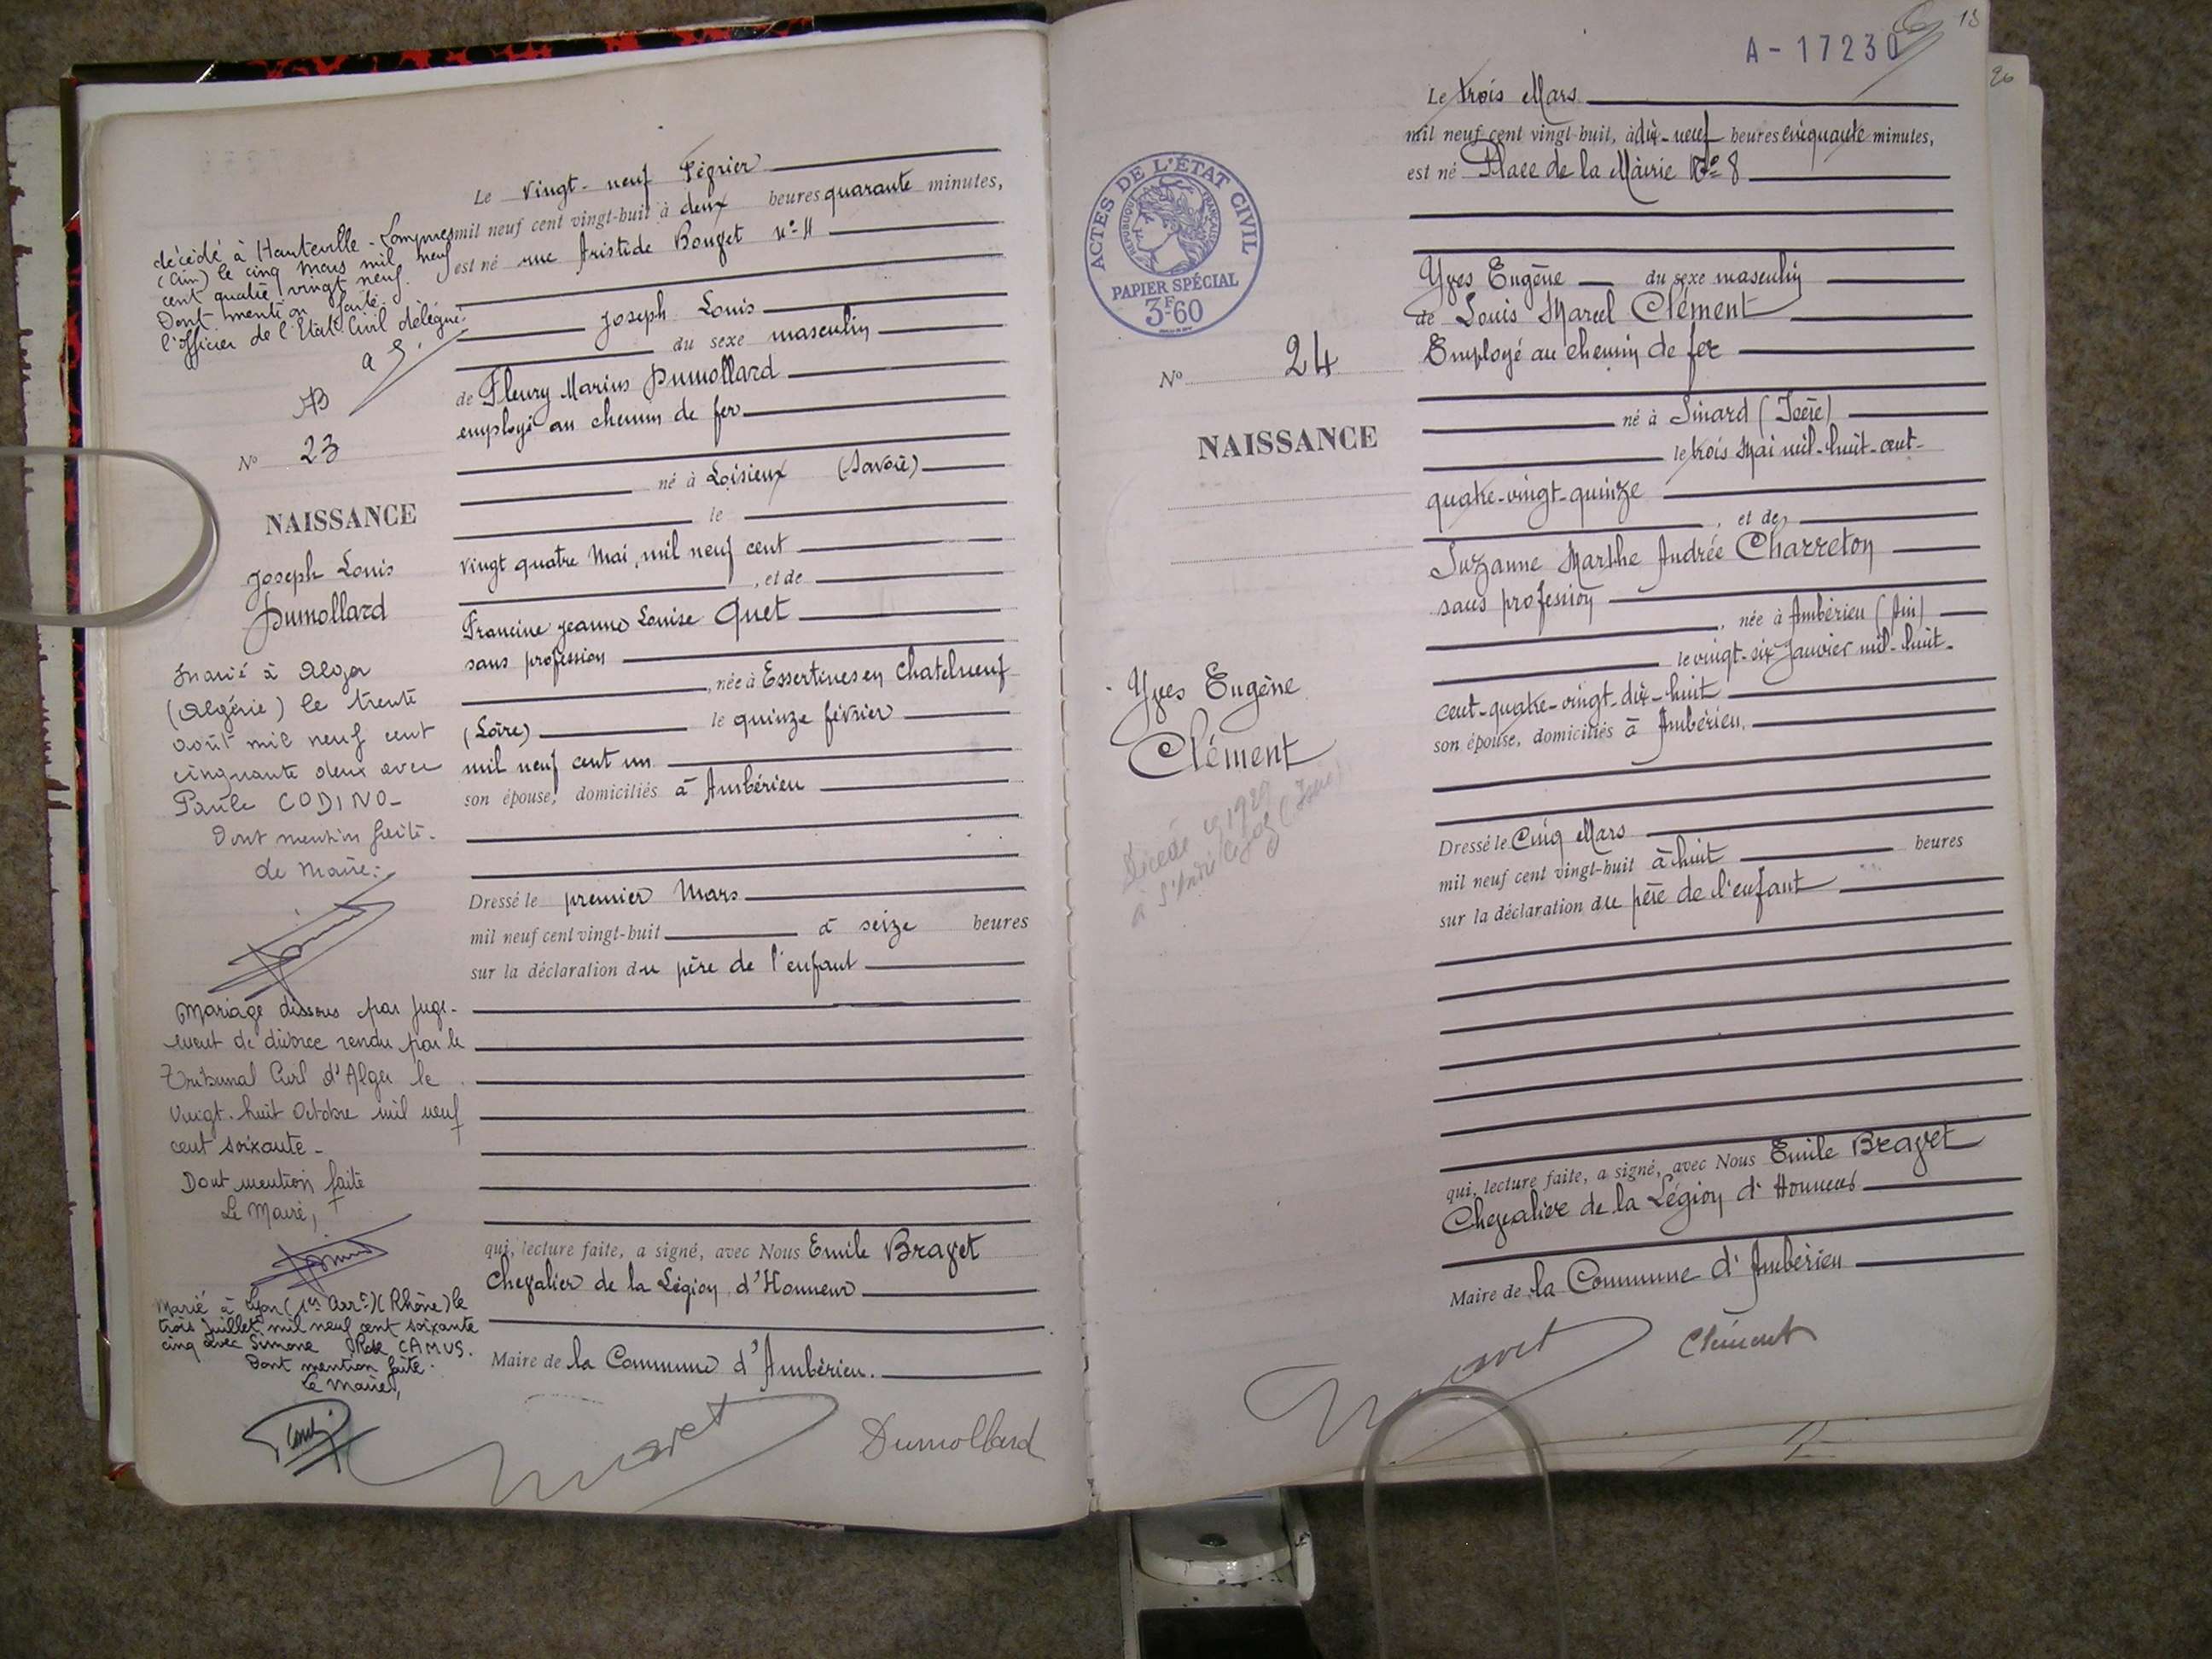 décédé à Hauteville-Lompnes
(Ain) le cinq mars mil neuf
cent quatre vingt neuf.
Dont mention faite.
l'officier de l'Etat Civil délégué.
N° 23
NAISSANCE
Joseph Louis
Dumollard
Marié à Alger
(Algérie) le trente
août mil neuf cent
cinquante deux avec
Paule CODINO-
Dont mention faite.
Le Maire:
Mariage dissous par juge-
ment de divorce rendu par le
Tribunal Civil d'Alger le
vingt-huit Octobre mil neuf
cent soixante-
Dont mention faite
Le Maire,
Marié à Lyon (1er Arrt) (Rhône) le
trois juillet mil neuf cent soixante
cinq avec Simone CAMUS.
Dont mention faite.
Le Maire,
Le vingt-neuf Février
mil neuf cent vingt-huit à deux heures quarante minutes,
est né rue Aristide Bouvet n° 11
Joseph Louis
du sexe masculin
de Fleury Marius Dumollard
employé au chemin de fer
né à Loisieux (Savoie)
le
vingt quatre Mai, mil neuf cent
, et de
Francine Jeanne Louise Quet
sans profession
, née à Essertines en Chatelneuf
(Loire) le quinze février
mil neuf cent un
son épouse, domiciliés à Ambérieu
Dressé le premier Mars
mil neuf cent vingt-huit à seize heures
sur la déclaration du père de l'enfant
qui, lecture faite, a signé, avec Nous Emile Bravet
Chevalier de la Légion d'Honneur
Maire de la Commune d'Ambérieu.
Dumollard
A-17230
13
26
ACTES DE L'ÉTAT CIVIL
RÉPUBLIQUE FRANÇAISE
PAPIER SPÉCIAL
3F60
N° 24
NAISSANCE
Yves Eugène
Clément
Décédé 1929
Le trois Mars
mil neuf cent vingt-huit, à dix-neuf heures cinquante minutes,
est né Place de la Mairie N° 8
Yves Eugène du sexe masculin
de Louis Marcel Clément
Employé au chemin de fer
né à Sinard (Isère)
le trois Mai mil-huit-cent-
quatre-vingt-quinze
, et de
Suzanne Marthe Andrée Charreton
sans profession
, née à Ambérieu (Ain)
le vingt-six Janvier mil-huit-
cent-quatre-vingt-dix-huit
son épouse, domiciliés à Ambérieu.
Dressé le Cinq Mars
mil neuf cent vingt-huit à huit heures
sur la déclaration du père de l'enfant
qui, lecture faite, a signé, avec Nous Emile Bravet
Chevalier de la Légion d'Honneur
Maire de la Commune d'Ambérieu
Clément